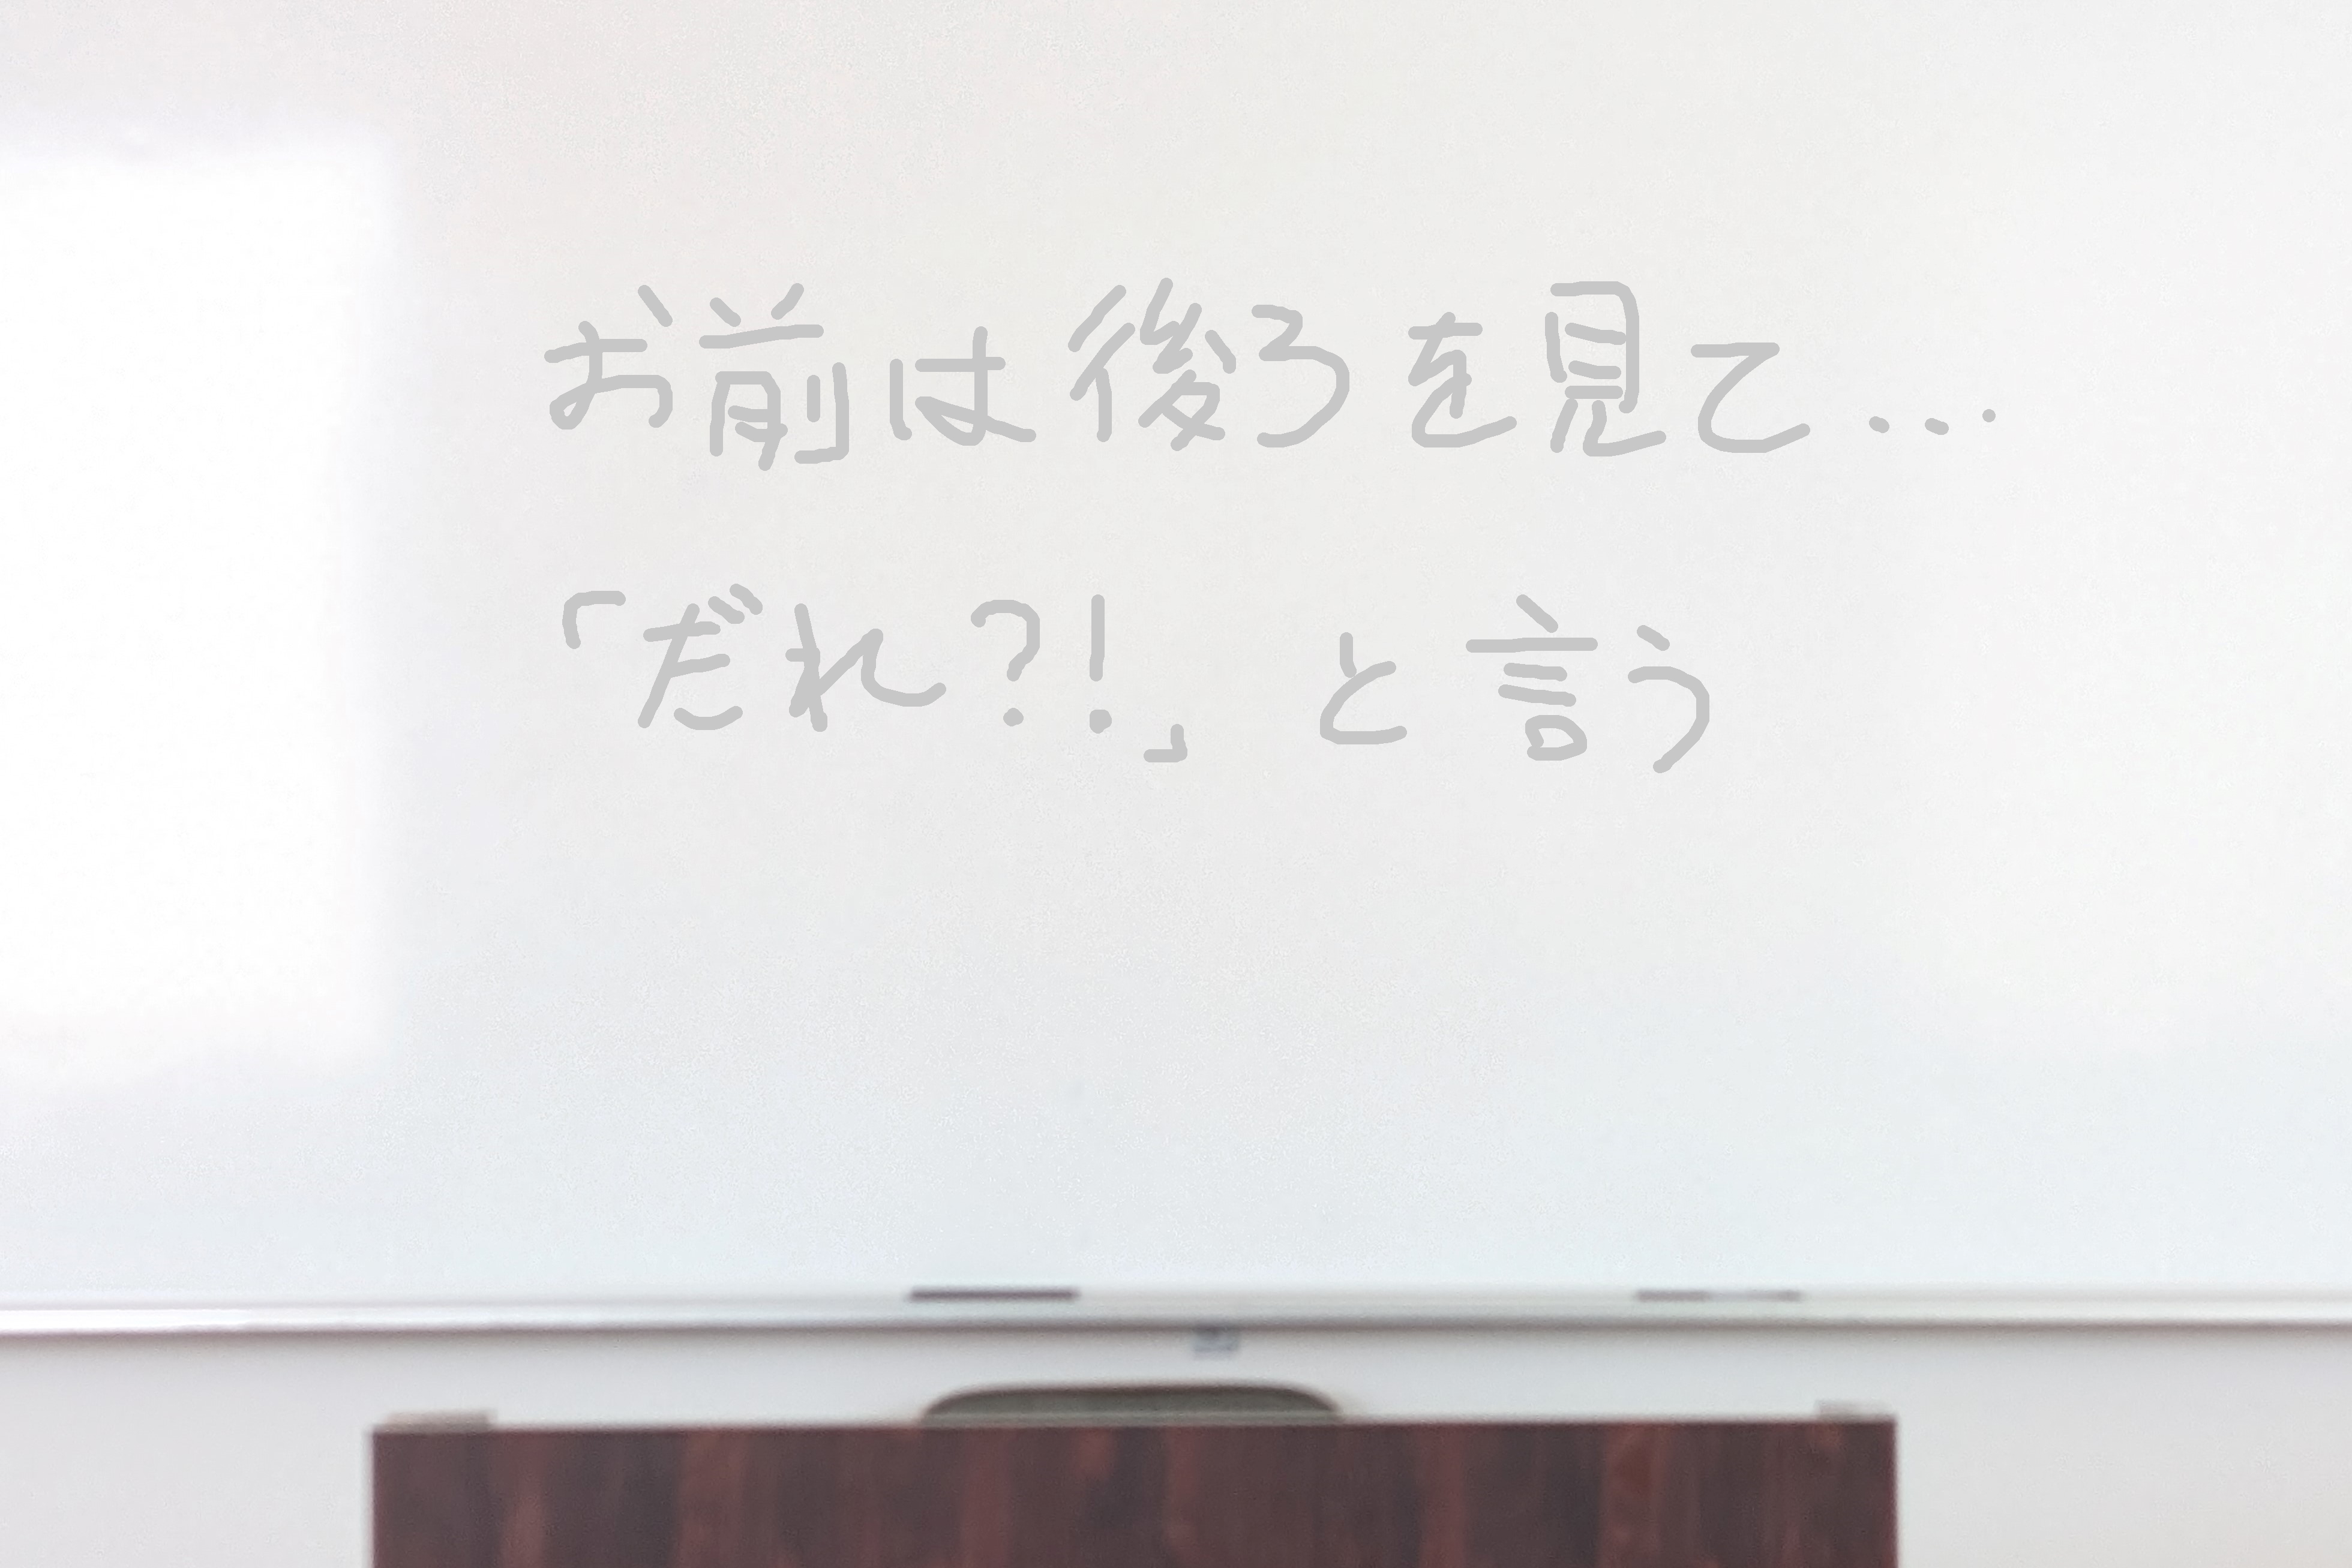 お前は後ろを見て...
「だれ?!」と言う